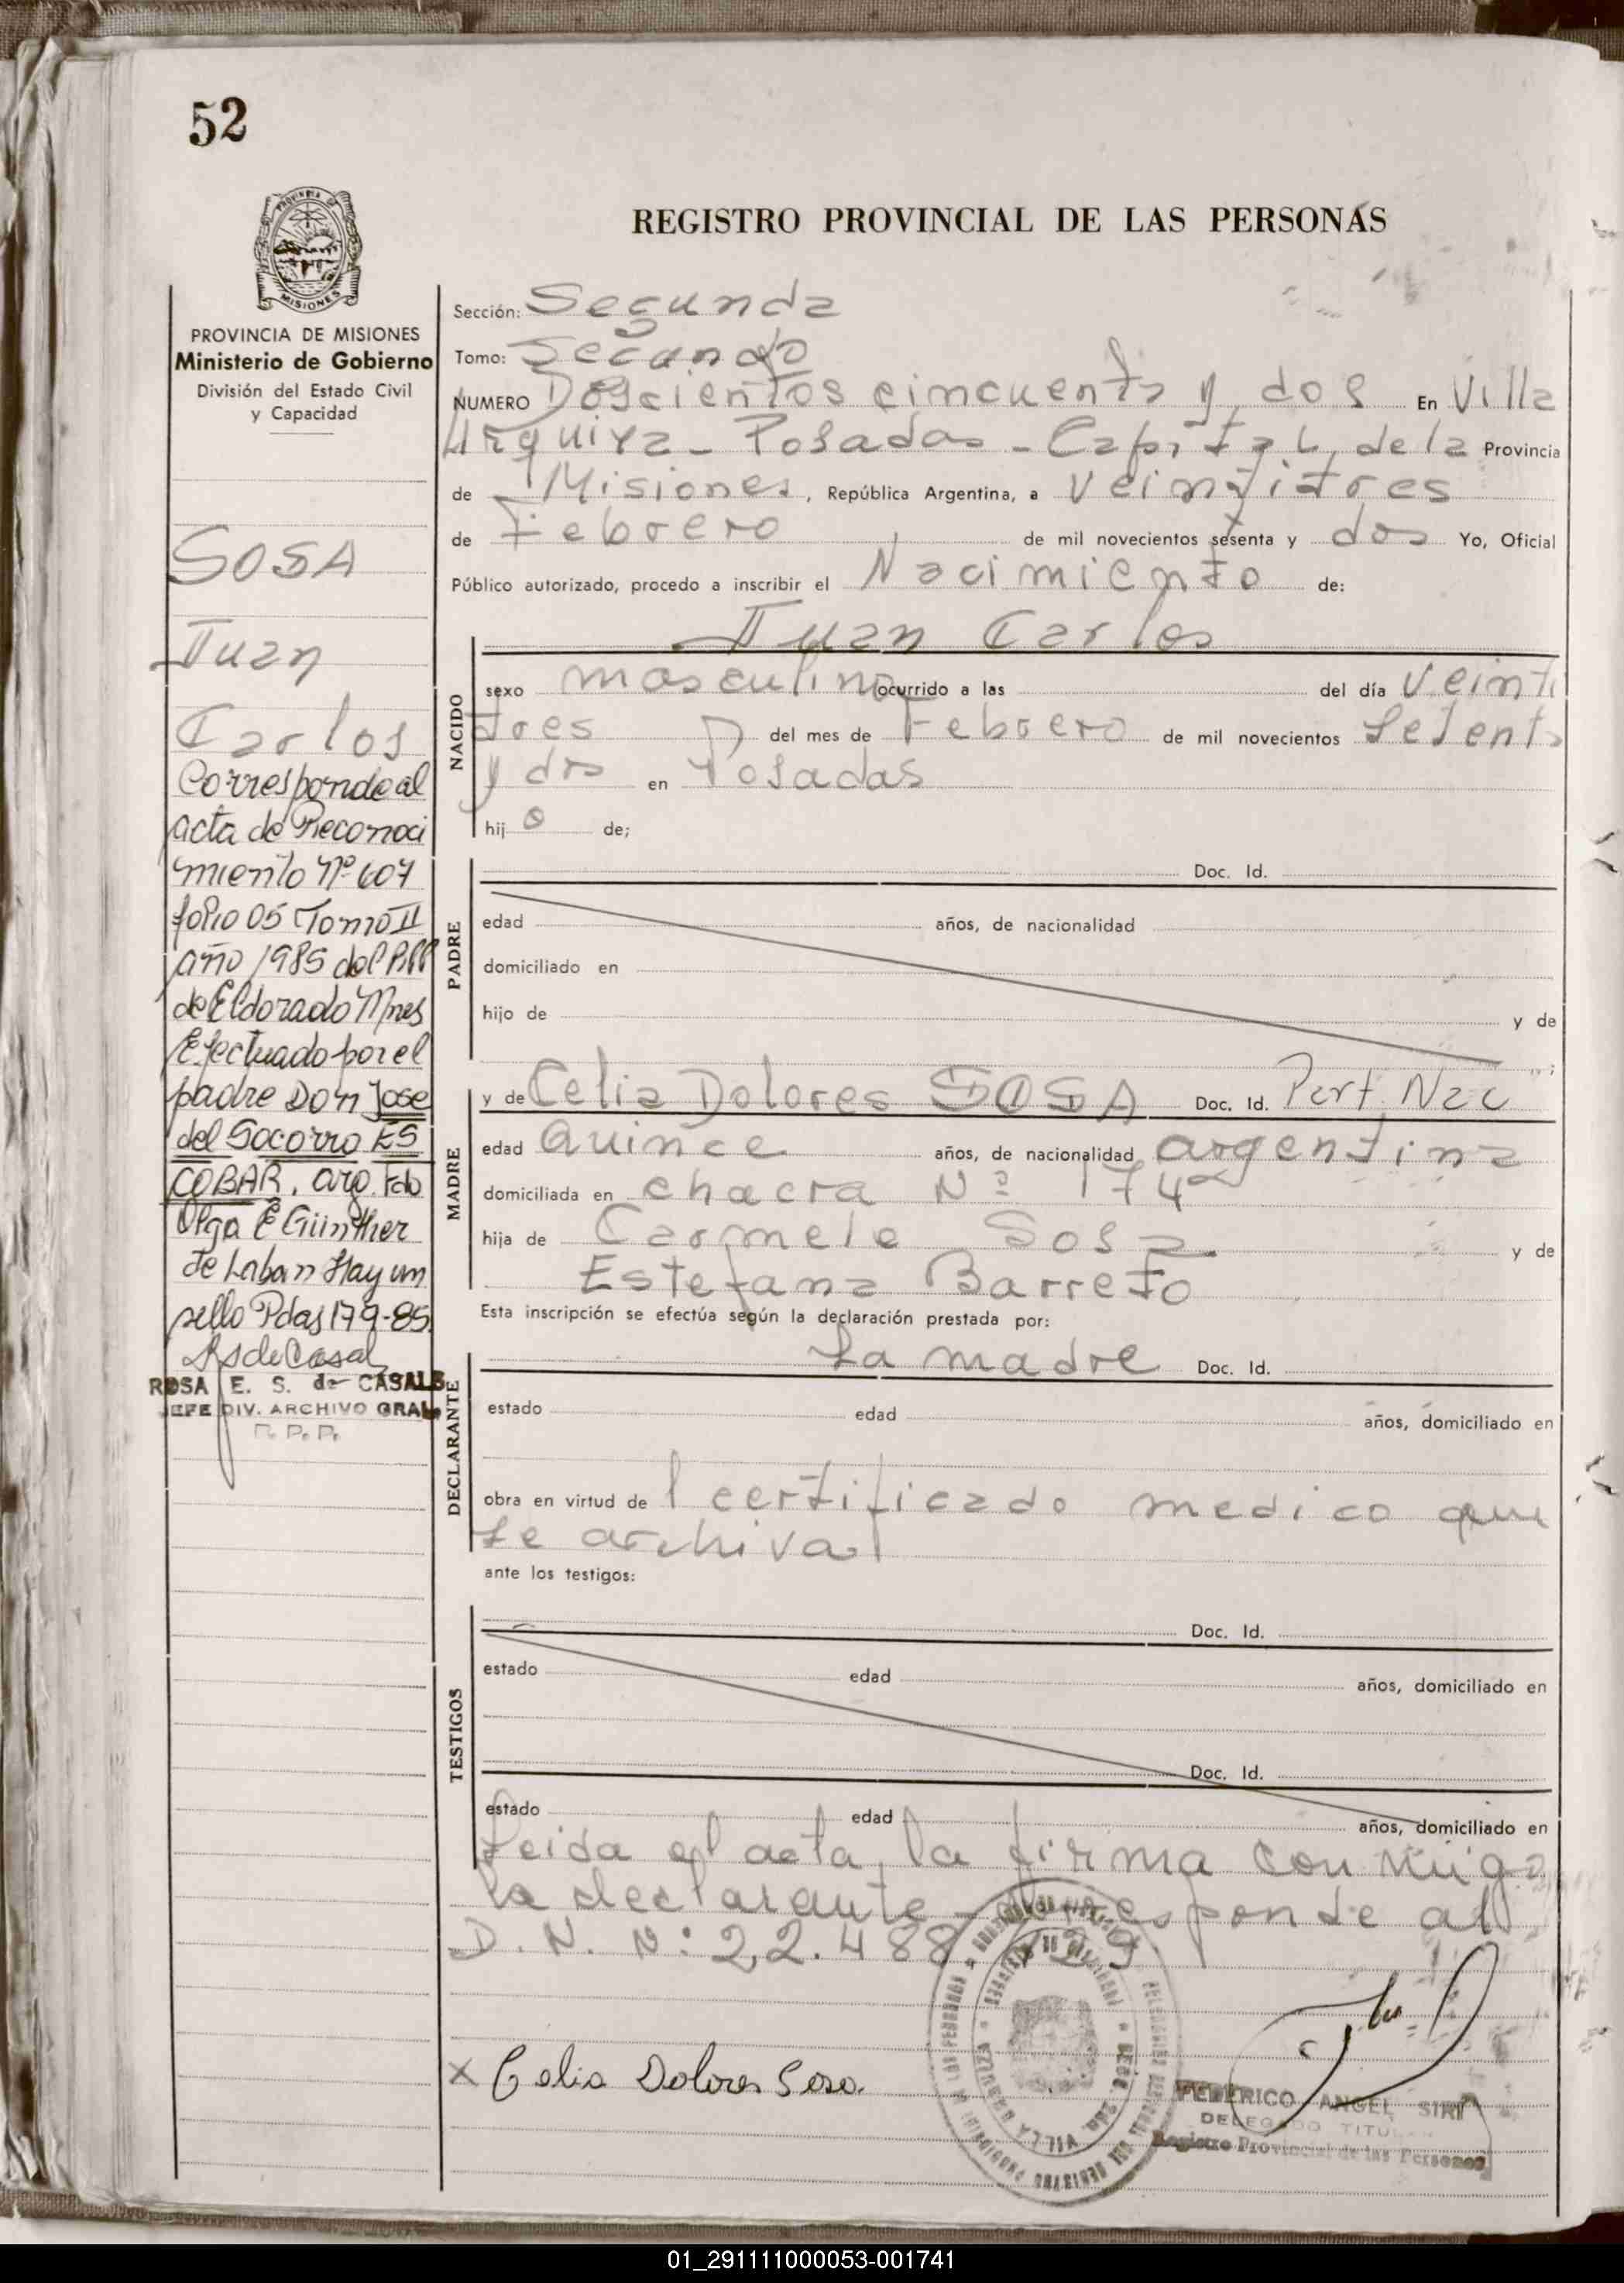 52
REGISTRO PROVINCIAL DE LAS PERSONAS
PROVINCIA DE MISIONES
Ministerio de Gobierno
División del Estado Civil
y Capacidad
SOSA
Juan
Carlos
Corresponde al
acta de Reconoci
miento Nº 607
folio 05 Tomo II
año 1985 del RPP
de Eldorado Mnes
Efectuado por el
padre Don Jose
del Socorro ES
COBAR, arg. Fdo
Olga E Günther
de Laban Hay un
sello Pdas 17-9-85
RS de Casal
ROSA E. S. de CASALS
JEFE DIV. ARCHIVO GRAL.
R. P. P.
Sección: Segunda
Tomo: Segundo
NUMERO Doscientos cincuenta y dos En Villa
Urquiza - Posadas - Capital de la Provincia
de Misiones, República Argentina, a veintitres
de Febrero de mil novecientos sesenta y dos Yo, Oficial
Público autorizado, procedo a inscribir el Nacimiento de:
Juan Carlos
NACIDO
sexo masculino ocurrido a las del día veinti
tres del mes de Febrero de mil novecientos setenta
y dos en Posadas
hij o de;
PADRE
Doc. Id.
edad años, de nacionalidad
domiciliado en
hijo de y de
MADRE
y de Celia Dolores SOSA Doc. Id. Part. Nac
edad Quince años, de nacionalidad argentina
domiciliada en chacra Nº 174
hija de Carmelo Sosa y de
Estefana Barreto
Esta inscripción se efectúa según la declaración prestada por:
DECLARANTE
La madre Doc. Id.
estado edad años, domiciliado en
obra en virtud de l certificado medico que
se archiva
ante los testigos:
TESTIGOS
Doc. Id.
estado edad años, domiciliado en
Doc. Id.
estado edad años, domiciliado en
Leida el acta, la firma conmigo
la declarante - Corresponde al
D. N. Nº: 22.488
x Celia Dolores Sosa.
FEDERICO ANGEL SIRI
DELEGADO TITULAR
Registro Provincial de las Personas
01_291111000053-001741